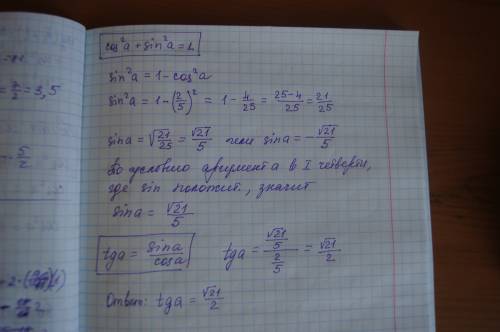 cos²a + sin²a = 1
sin²a = 1 - cos²a
= 3,5
sin²a = 1 - (2/5)² = 1 - 4/25 = (25-4)/25 = 21/25
sina = √(21/25) = √21/5 или sina = -√21/5
- 5/2
По условию аргумент a в I четверти,
где sin положит., значит
sina = √21/5
tga = sina/cosa tga = (√21/5)/(2/5) = √21/2
Ответ: tga = √21/2